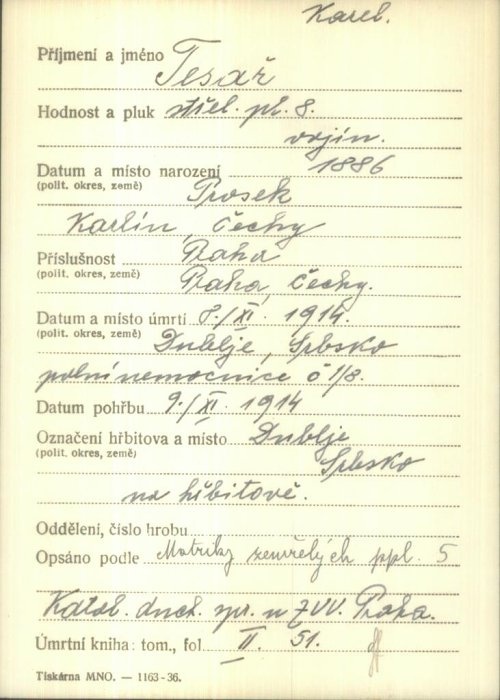 Karel.
Příjmení a jméno Tesař
Hodnost a pluk střel. pl. 8.
vojín.
Datum a místo narození 1886
(polit. okres, země) Prosek
Karlín, Čechy
Příslušnost Praha
(polit. okres, země) Praha, Čechy.
Datum a místo úmrtí 8./XI. 1914.
(polit. okres, země) Dublje, Srbsko
polní nemocnice č 1/8.
Datum pohřbu 9./XI. 1914
Označení hřbitova a místo Dublje
(polit. okres, země) Srbsko
na hřbitově.
Oddělení, číslo hrobu
Opsáno podle Matriky zemřelých ppl. 5
Katol. duch. spr. u ZVV. Praha.
Úmrtní kniha: tom., fol. II. 51.
Tiskárna MNO. — 1163-36.